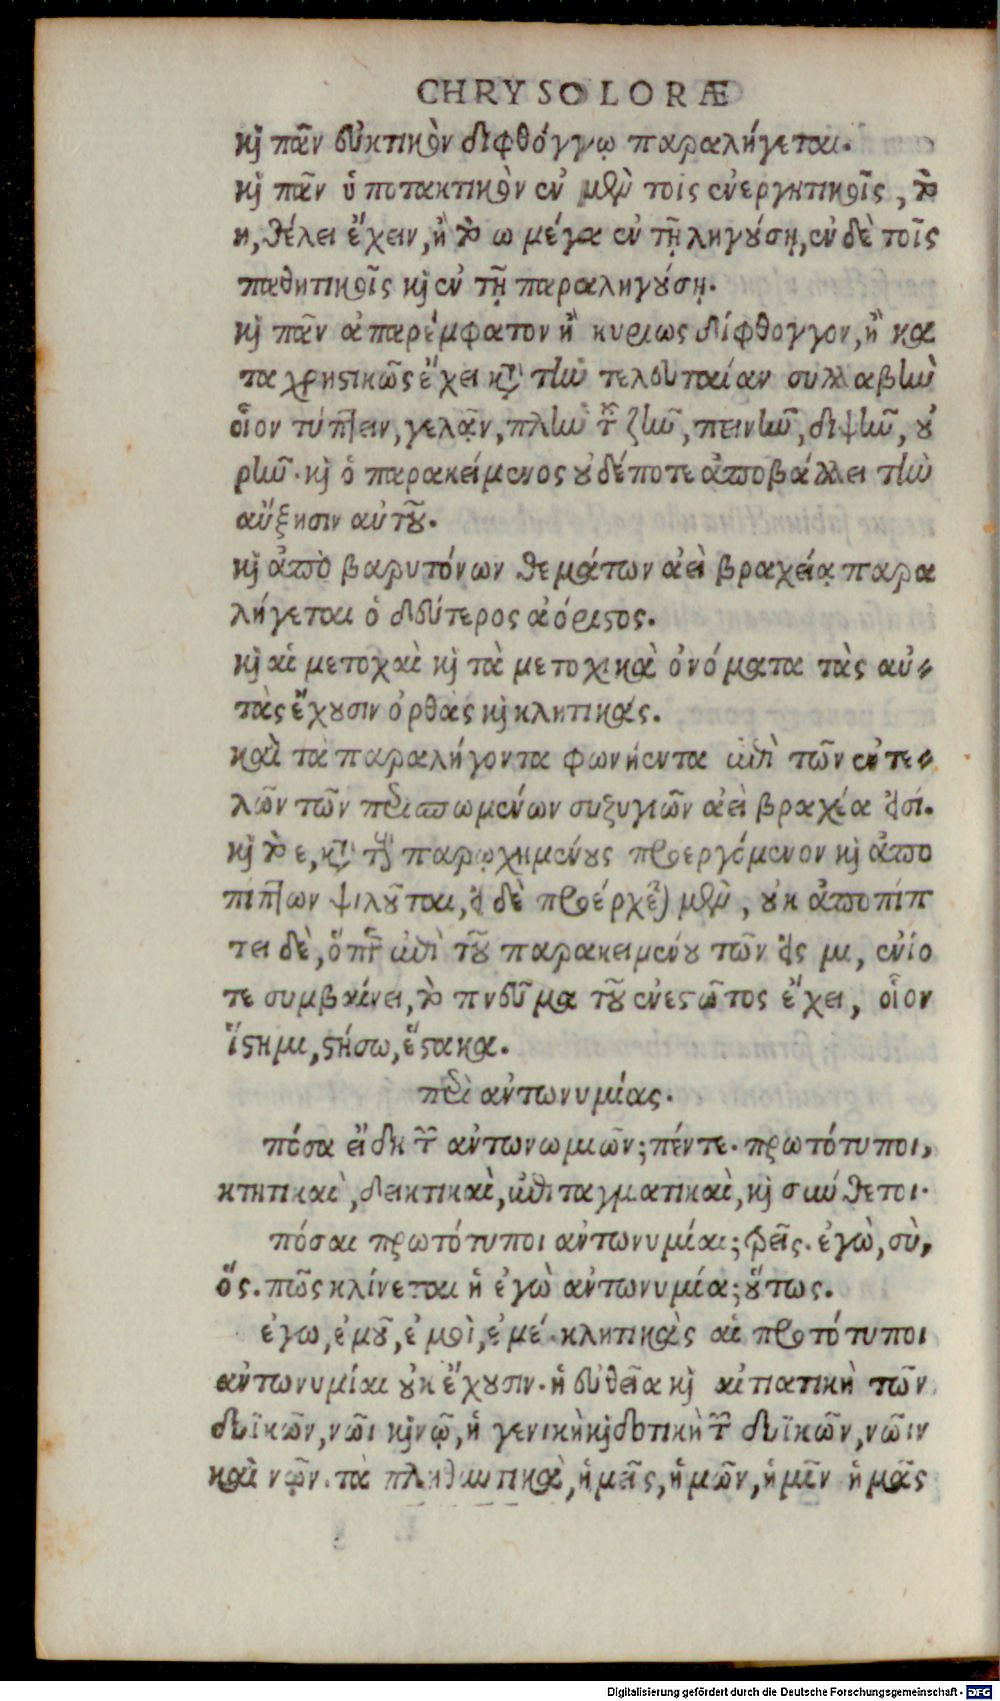 CHRYSOLORÆ
καὶ πᾶν εὐκτικὸν διφθόγγῳ παραλήγεται.
καὶ πᾶν ὑποτακτικὸν ἐν μὲν τοῖς ἐνεργητικοῖς, τὸ
η, θέλει ἔχειν, ἢ τὸ ω μέγα ἐν τῇ ληγούσῃ, ἐν δὲ τοῖς
παθητικοῖς καὶ ἐν τῇ παραληγούσῃ.
καὶ πᾶν ἀπαρέμφατον ἢ κυρίως δίφθογγον, ἢ κα
ταχρηστικῶς ἔχει κατὰ τὴν τελευταίαν συλλαβὴν
οἷον τύπτειν, γελᾷν, πλὴν τοῦ ζῆν, πεινῆν, διψῆν, οὐ
ρῆν. καὶ ὁ παρακείμενος οὐδέποτε ἀποβάλλει τὴν
αὔξησιν αὐτοῦ.
καὶ ἀπὸ βαρυτόνων θεμάτων ἀεὶ βραχείᾳ παρα
λήγεται ὁ δεύτερος ἀόριστος.
καὶ αἱ μετοχαὶ καὶ τὰ μετοχικὰ ὀνόματα τὰς αὐ-
τὰς ἔχουσιν ὀρθὰς καὶ κλητικάς.
καὶ τὰ παραλήγοντα φωνήεντα ἐπὶ τῶν ἐντε-
λῶν τῶν περισπωμένων συζυγιῶν ἀεὶ βραχέα εἰσί.
καὶ τὸ ε, κατὰ τοὺς παρῳχημένους προεργόμενον καὶ ἀπο
πίπτων ψιλοῦται, εἰ δὲ προέρχεται μὲν, οὐκ ἀποπίπ
τει δὲ, ὅπερ ἐπὶ τοῦ παρακειμένου τῶν εἰς μι, ἐνίο
τε συμβαίνει, τὸ πνεῦμα τοῦ ἐνεστῶτος ἔχει, οἷον
ἵστημι, στήσω, ἕστακα.
περὶ ἀντωνυμίας.
πόσα εἴδη τῶν ἀντωνωμιῶν; πέντε. πρωτότυποι,
κτητικαὶ, δεικτικαὶ, ἐπιταγματικαὶ, καὶ σύνθετοι.
πόσαι πρωτότυποι ἀντωνυμίαι; τρεῖς. ἐγὼ, σὺ,
ὅς. πῶς κλίνεται ἡ ἐγὼ ἀντωνυμία; οὕτως.
ἐγω, ἐμοῦ, ἐμοὶ, ἐμέ. κλητικὰς αἱ προτότυποι
ἀντωνυμίαι οὐκ ἔχουσιν. ἡ εὐθεῖα καὶ αἰτιατικὴ τῶν
δυϊκῶν, νῶι καὶ νῷ, ἡ γενικὴ καὶ δοτικὴ τῶν δυϊκῶν, νῶιν
καὶ νῷν. τὰ πληθυντικὰ, ἡμεῖς, ἡμῶν, ἡμῖν ἡμᾶς
Digitalisierung gefördert durch die Deutsche Forschungsgemeinschaft - DFG